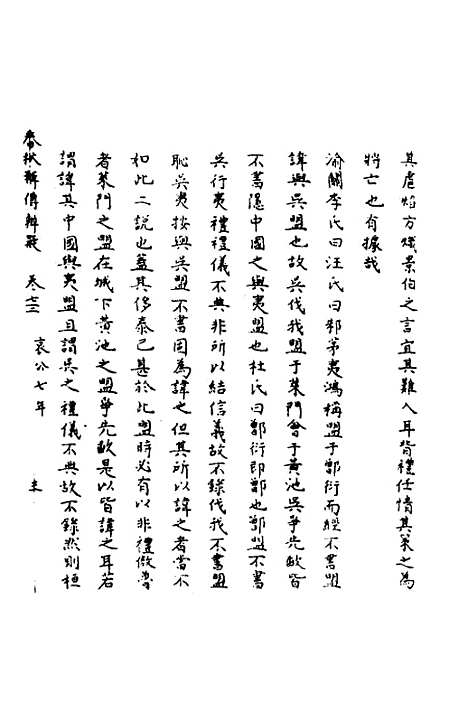 其虐焰方熾景伯之言宜其難入耳背禮任情其策之為
將亡也有據哉
渝關李氏曰汪氏曰邾茅夷鴻稱盟于鄫衍而經不書盟
諱與吳盟也故吳伐我盟于萊門會于黃池吳爭先歃皆
不書隱中國之與夷盟也杜氏曰鄫衍即鄫也鄫盟不書
吳行夷禮禮儀不典非所以結信義故不錄伐我不書盟
恥吳夷按與吳盟不書固為諱之但其所以諱之者當不
如此二說也蓋其侈泰已甚於此盟時必有以非禮傲魯
者萊門之盟在城下黃池之盟爭先歃是以皆諱之耳若
謂諱其中國與夷盟且謂吳之禮儀不典故不錄然則桓
春秋輯傳辨疑 卷 哀公七年